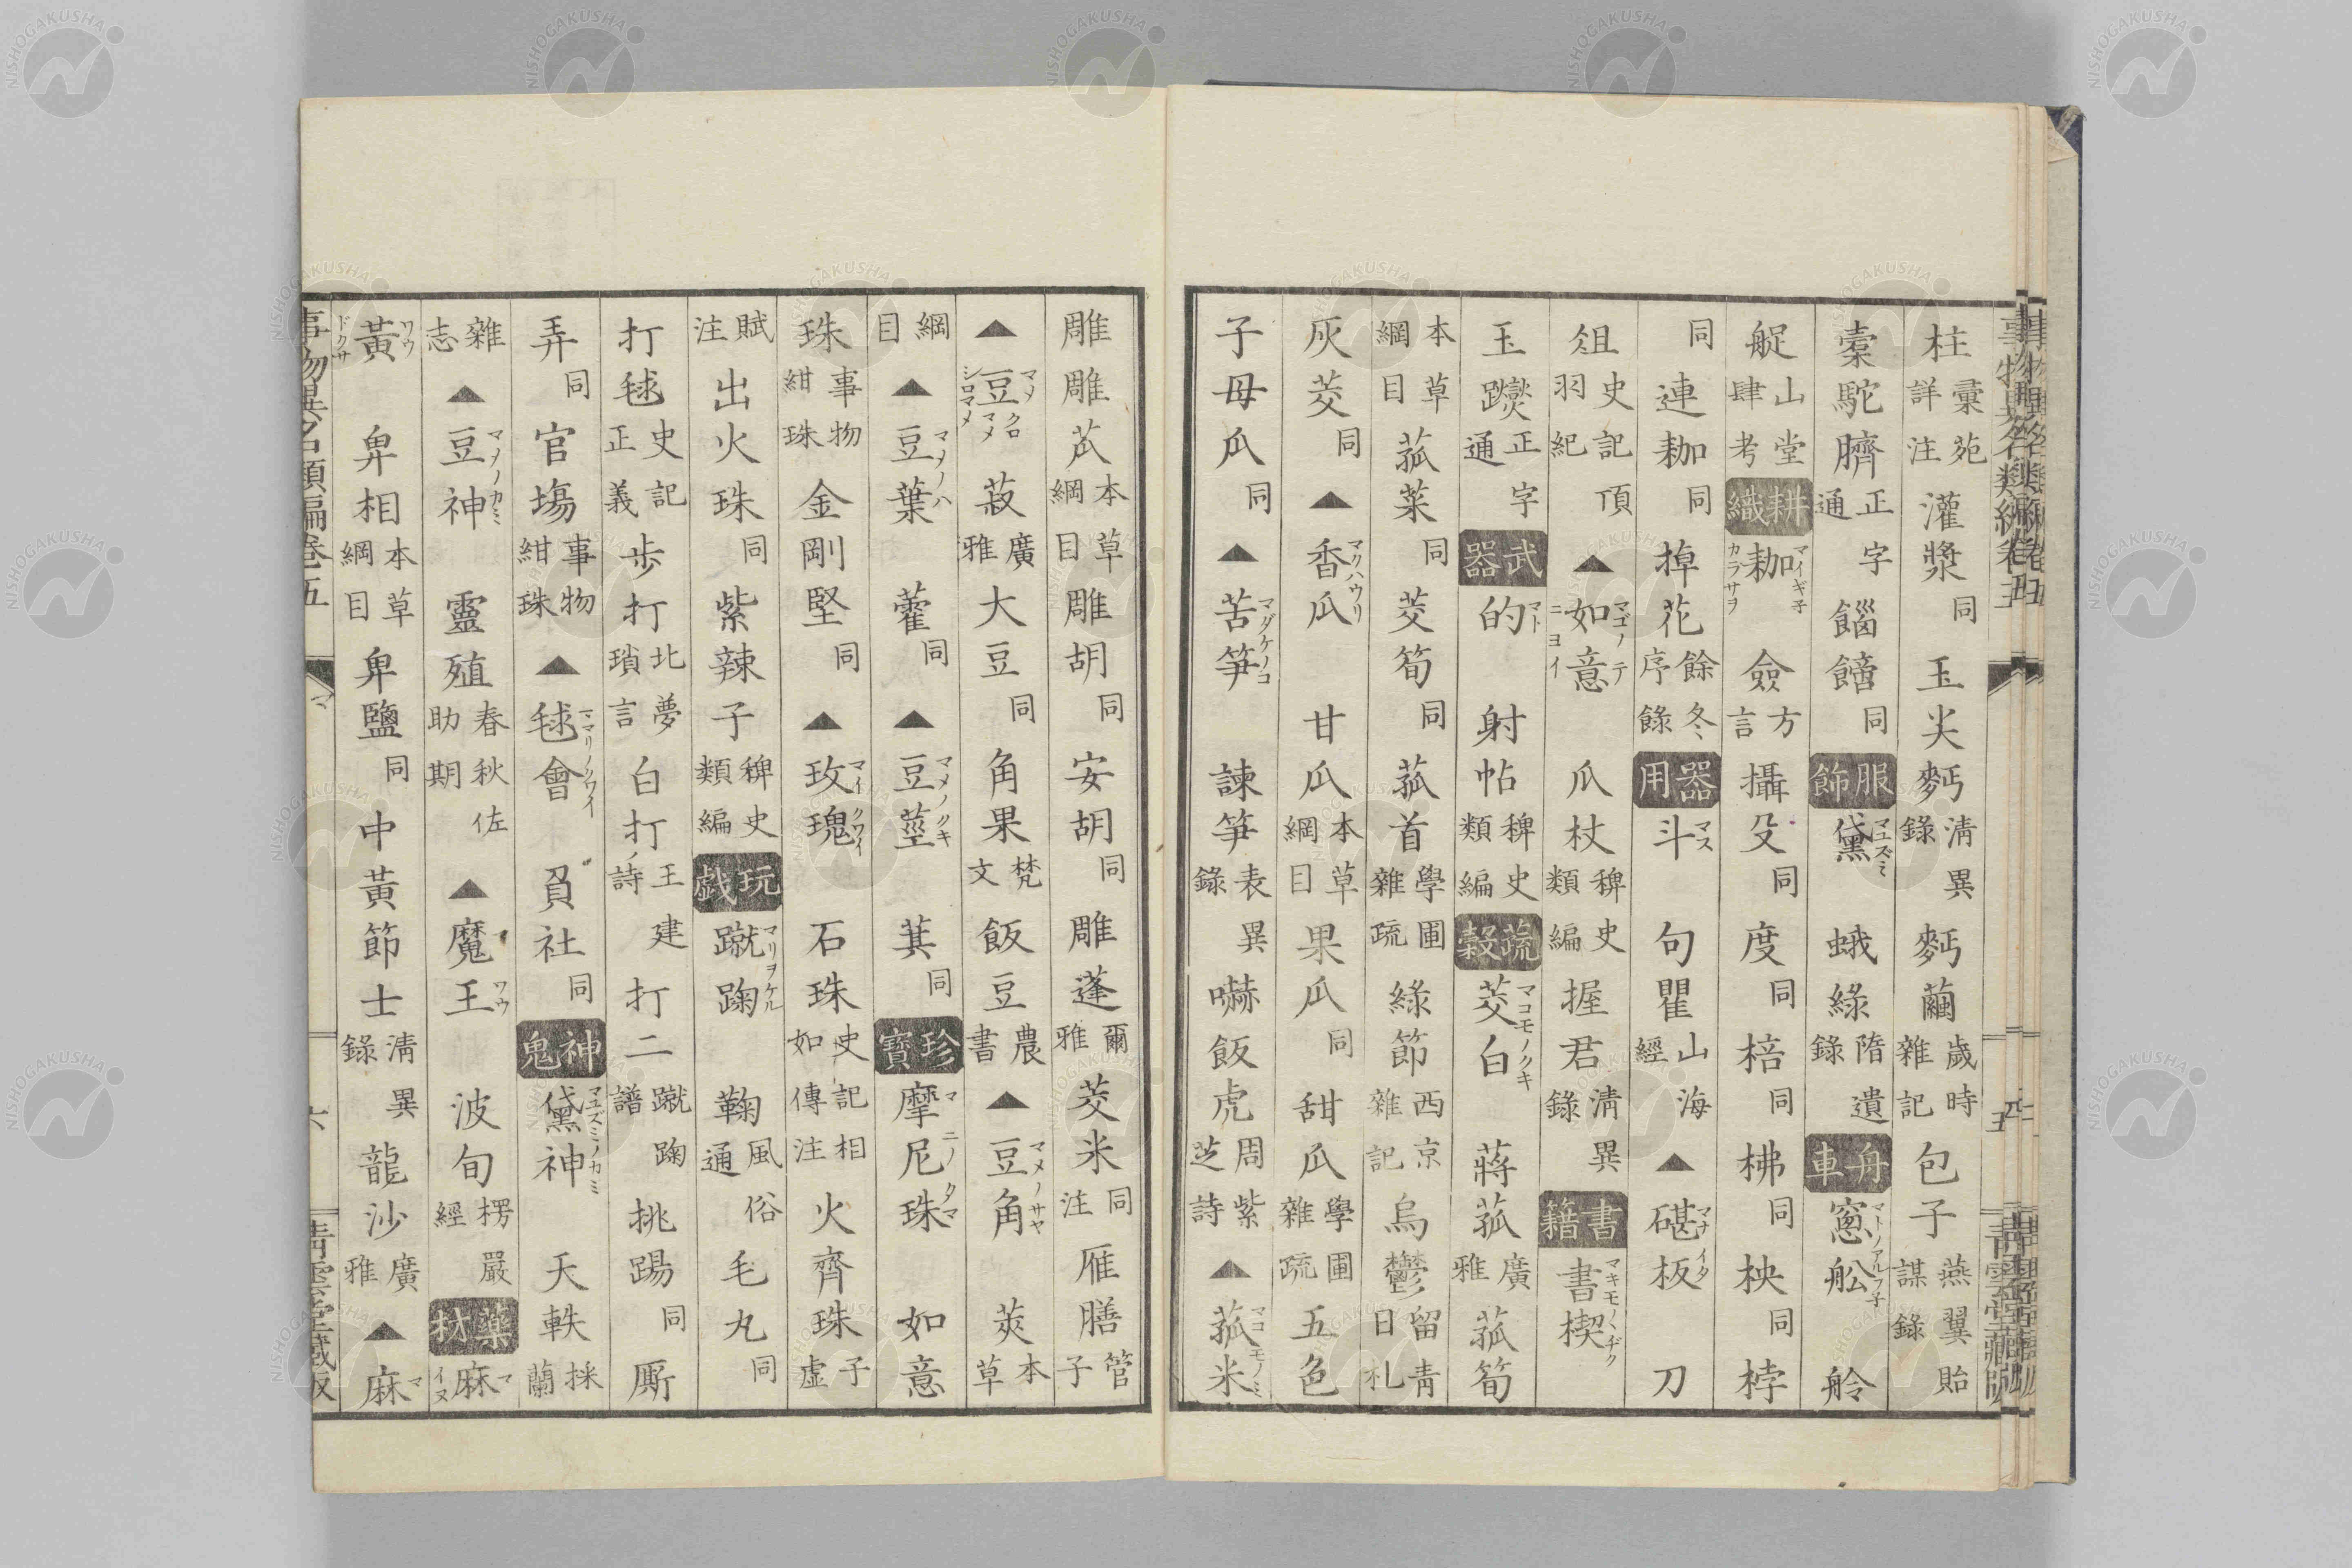 柱彙苑詳注灌漿同玉尖麫清異錄麫繭歲時雜記包子燕翼貽謀錄
橐駝臍正字通餾饎同服飾黛マユズミ蛾綠隋遺錄舟車窻舩マトノアルフ子舲
艇山堂肆考耕織耞マイギ子カラサヲ僉方言攝殳同度同棓同柫同柍同桲
同連耞同掉花餘冬序錄器用斗マス句瞿山海經▲碪板マナイタ刀
俎史記項羽紀▲如意マゴノテニヨイ瓜杖稗史類編握君清異錄書籍書楔マキモノヽヂク
玉躞正字通武器的マト射帖稗史類編蔬穀茭白マコモノクキ蔣菰廣雅菰筍
本草綱目菰菜同茭筍同菰首學圃雜疏綠節西京雜記烏鬱留青日札
灰茭同▲香瓜マクハウリ甘瓜本草綱目果瓜同甜瓜學圃雜疏五色
子母瓜同▲苦笋マダケノコ諫笋表異錄嚇飯虎周紫芝詩▲菰米マコモノミ
雕雕苽本草綱目雕胡同安胡同雕蓬爾雅茭米同注雁膳管子
▲豆マメクロマメシロマメ菽廣雅大豆同角果梵文飯豆農書▲豆角マメノサヤ莢本草
綱目▲豆葉マメノハ藿同▲豆莖マメノクキ萁同珍寶摩尼珠マニノタマ如意
珠事物紺珠金剛堅同▲玫瑰マイクワイ石珠史記相如傳注火齊珠子虛
賦注出火珠同紫辣子稗史類編玩戯蹴踘マリヲケル鞠風俗通毛丸同
打毬史記正義歩打北夢瑣言白打王建詩打二蹴踘譜挑踢同厮
弄同官塲事物紺珠▲毬會マリノクワイ負社同神鬼黛神マユズミノカミ天軼採蘭
雜志▲豆神マメノカミ靈殖春秋佐助期▲魔王ワウ波旬楞嚴經薬材麻マイヌ
黃ワウドクサ䢃相本草綱目䢃鹽同中黃節士清異錄龍沙廣雅▲麻マ
事物異名類編卷五 マ 六 青雲堂藏版